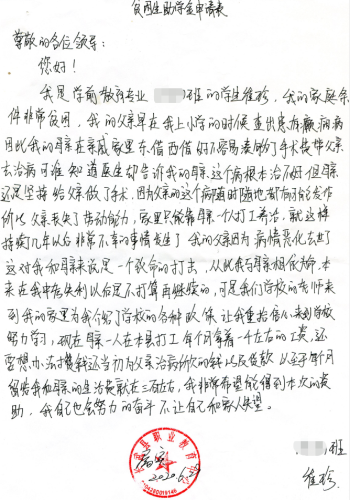 贫困生助学金申请表
尊敬的各位领导：
您好！
我是学前教育专业 班的学生维珍，我的家庭条
件非常贫困，我的父亲早在我上小学的时候查出患癫痫病
因此我的母亲在亲戚家里东借西借好不容易凑够了手术费带父亲
去治病可谁知道医生却告诉我的母亲这个病根本治不好但母亲
还是坚持给父亲做了手术，因为父亲的这个病随时随地都有可能发作
所以父亲失去了劳动能力，家里只能靠母亲一个人打工养活，就这样
持续几年以后非常不幸的事情发生了 我的父亲因为病情恶化去世了
这对我和母亲来说是一个致命的打击，从此我与母亲相依为命，本
来在我中考失利以后是不打算再继续的，可是我们学校的老师来
到我的家里为我介绍了学校的各种政策，让我重拾信心来到学校
努力学习，现在母亲一人在本县打工每个月拿着一千左右的工资，还
要想办法攒钱还当初为父亲治病欠的钱以及贷款 以至于每个月
留给我和母亲的生活费就在三百左右，我非常希望能得到本次的资
助，我自己也会努力的奋斗不让自己和家人失望。
县职业教育中
2020.6.29
班
维珍